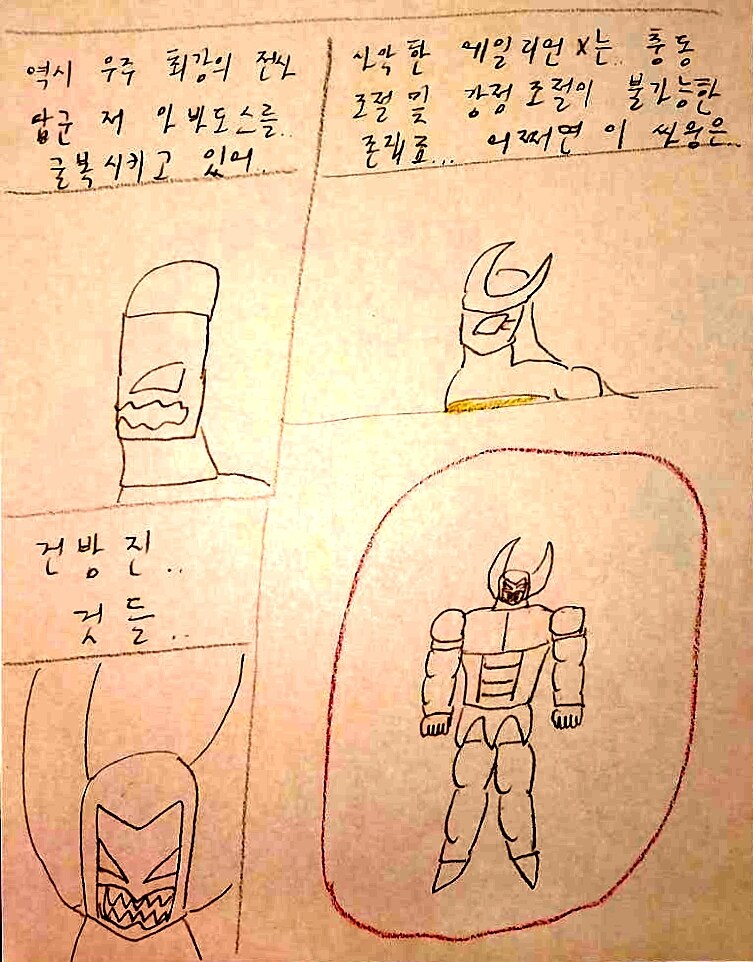 역시 우주 최강의 전사
답군 저 아바도스를..
굴복시키고 있어..
사악한 에일리언X는.. 충동
조절 및 감정 조절이 불가능한
존재죠... 어쩌면 이 싸움은..
건방진..
것들..